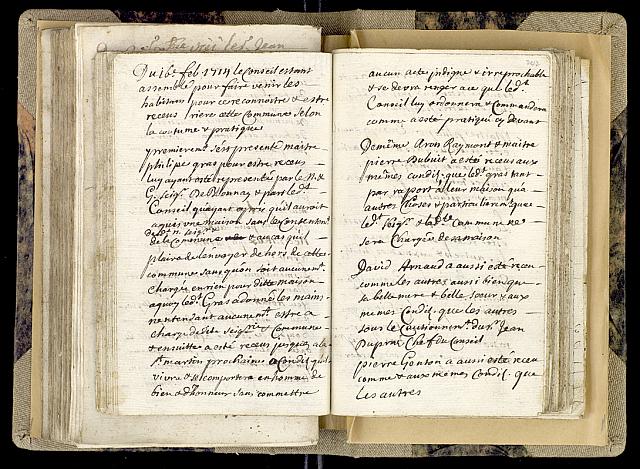 Du 16e feb 1714 le Conseil estant
assemblé pour faire venir les
habitans pour ce reconnoistre & estre
receus riere cette Commune selon
la coutume & pratique
premierement s'est presenté maitre
philipe gras pour estre receus
luy ayant esté representé par le N. &
G. Seigr De Blonnay & par ledt
Conseil quayant apris quil auroit
aquis une maison sans le Consentemt
dudt n. seigr
de la Commune & au cas quil
plaira de l'envoyer de hors de cette
commune sans quon soit aucunemt
chargé en rien pour ditte maison
aquoy ledt Gras a donné les mains
nentendant aucunemt estre a
charge de dte Seigrie & Commune
& ensuitte a esté receu jusques a la
St martin prochaine a Condit quil
vivra & se comportera en homme de
bien & d'honneur sans commettre
aucun acte indigne & irreprochable
& se devra ranger a ce que ledt
Conseil luy ordonnera & Commandera
comme a esté pratiqué cy devant
De même Arots Raymont & maitre
pierre Dubuit a esté receus aux
mêmes condit. que ledt gras tant
par raport a leur maison qua
autres choses & particulierement que
ledt Seigr & ladte Commune ne
sera Chargée de sa maison
David Arnaud a aussi esté receu
comme les autres aussi bien que
sa belle mere & belle soeur & aux
mêmes Condit. que les autres
sous le Cautionnemt du Sr Jean
Dupraz Chef du Conseil
pierre Gonton a aussi esté receu
comme & aux mêmes Condit. que
les autres